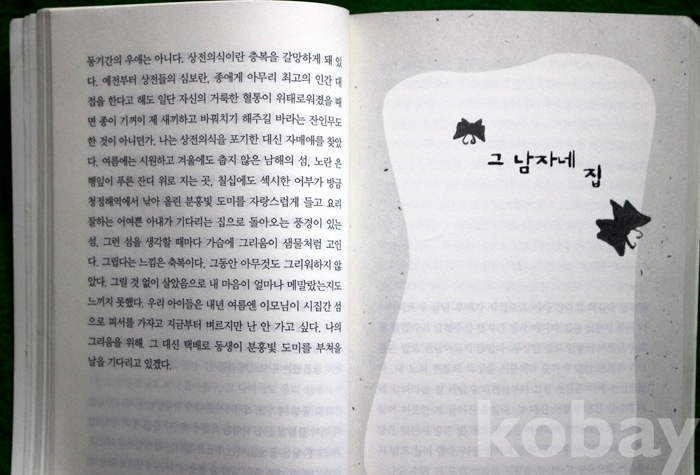 동기간의 우애는 아니다. 상전의식이란 충복을 갈망하게 돼 있
다. 예전부터 상전들의 심보란, 종에게 아무리 최고의 인간 대
접을 한다고 해도 일단 자신의 거룩한 혈통이 위태로워졌을 때
면 종이 기꺼이 제 새끼하고 바꿔치기 해주길 바라는 잔인무도
한 것이 아니던가. 나는 상전의식을 포기한 대신 자매애를 찾았
다. 여름에는 시원하고 겨울에도 춥지 않은 남해의 섬, 노란 은
행잎이 푸른 잔디 위로 지는 곳, 칠십에도 섹시한 어부가 방금
청정해역에서 낚아 올린 분홍빛 도미를 자랑스럽게 들고 요리
잘하는 어여쁜 아내가 기다리는 집으로 돌아오는 풍경이 있는
섬, 그런 섬을 생각할 때마다 가슴에 그리움이 샘물처럼 고인
다. 그립다는 느낌은 축복이다. 그동안 아무것도 그리워하지 않
았다. 그릴 것 없이 살았음으로 내 마음이 얼마나 메말랐는지도
느끼지 못했다. 우리 아이들은 내년 여름엔 이모님이 시집간 섬
으로 피서를 가자고 지금부터 벼르지만 난 안 가고 싶다. 나의
그리움을 위해. 그 대신 택배로 동생이 분홍빛 도미를 부쳐올
날을 기다리고 있겠다.
그 남자네 집
kobay